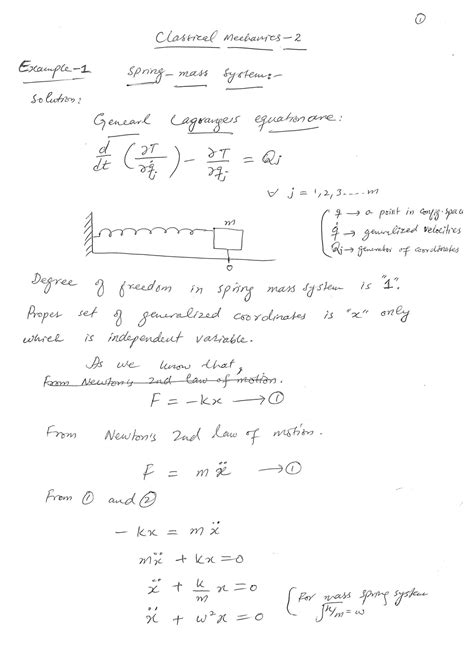 ①
Classical Mechanics-2
Example-1 Spring-mass System:-
Solution:
Genearl Lagranges equation are:
d/dt (∂T/∂q̇j) - ∂T/∂qj = Qj
∀ j = 1,2,3.....m
m
q → a point in config-space
q̇ → generalized velocities
Qj → generator of coordinates
0
Degree of freedom in spring mass system is "1".
Proper set of generalized coordinates is "x" only
which is independent variable.
As we know that,
From Newton's 2nd law of motion.
F = -kx → ①
From Newton's 2nd law of motion.
F = mẍ → ①
From ① and ②
- kx = mẍ
mẍ + kx = 0
ẍ + k/m x = 0
ẍ + ω²x = 0
For mass spring system
√k/m = ω